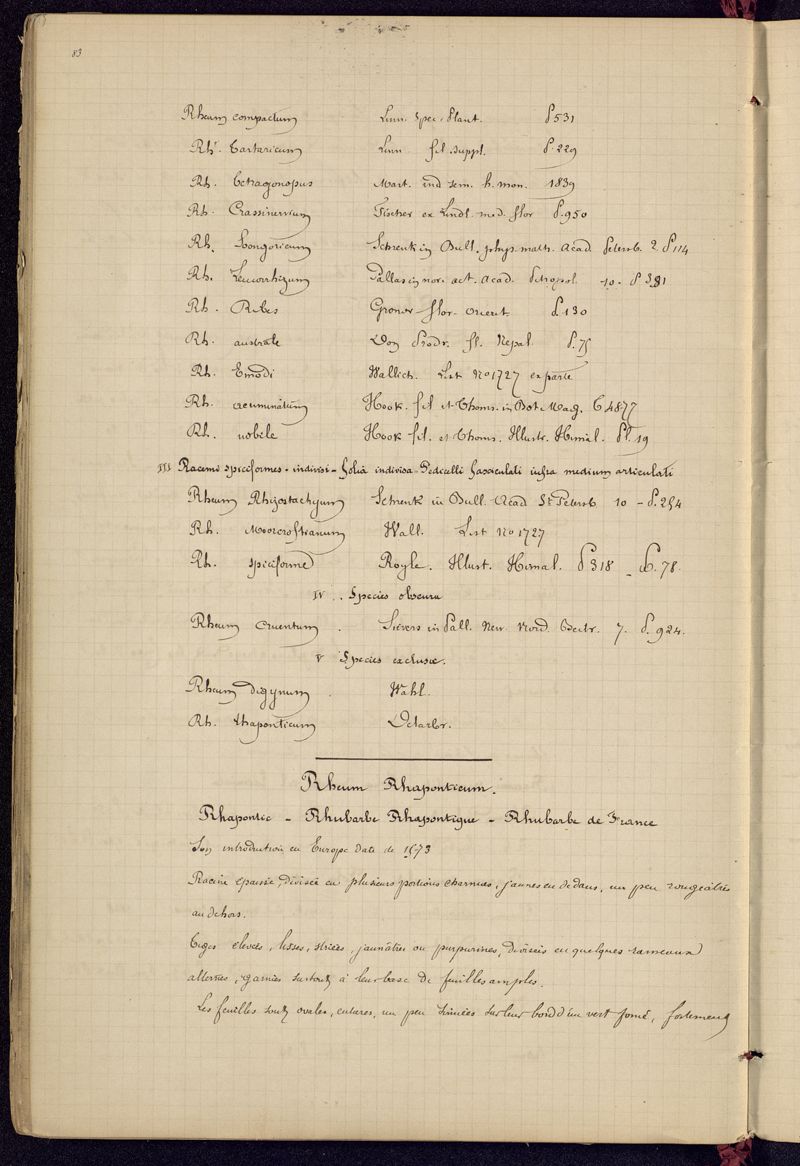 83
Rheum compactum Linn. Spec. Plant. P 531
Rh. Tartaricum Linn. fil. suppl. P. 229
Rh. tetragonopus Mart. ind sem. h. mon. 1839
Rh. Crassinervium Fischer ex Lindl. med. flor P. 950
Rh. Songoricum Schrenk in Bull. phys. math. Acad Petersb. 2. P 114
Rh. Leucorrhizum Pallas in nov. act. Acad. Petropol. 10. P 381
Rh. Ribes Gronov. flor. orient P. 130
Rh. australe Don Prodr. fl. Nepal. P. 75
Rh. Emodi Wallich. List No 1727 ex parte
Rh. acuminatum Hook. fil et Thoms. in Bot. Mag. t. 4877
Rh. nobile Hook fil. et Thoms. Illustr. Himal. Pl. 19
III Racemi spiciformes. indivisi - folia indivisa - Pedicelli fasciculati infra medium articulati
Rheum Rhizostachyum Schrenk in Bull. Acad St Petersb 10 - P. 254
Rh. Moorcroftianum Wall. List No 1727
Rh. spiciforme Royle. Illust. Himal. P 318 - t. 78.
IV . Species obscura
Rheum cruentum . Sievers in Pall. New. Nord. Beitr. 7. P. 924.
V Species exclusæ.
Rheum digynum . Wahl.
Rh. rhaponticum
Rheum Rhaponticum.
Rhapontic - Rhubarbe Rhapontique - Rhubarbe de France
Son introduction en Europe date de 1573
Racine épaisse, divisée en plusieurs portions charnues, jaunes en dedans, un peu rougeâtres
au dehors.
Tiges élevées, lisses, striées, jaunâtres ou purpurines, divisées en quelques rameaux
alternes, garnies surtout à leur base de feuilles amples.
Les feuilles sont ovales, entières, un peu sinuées sur leur bord d'un vert foncé, fortement